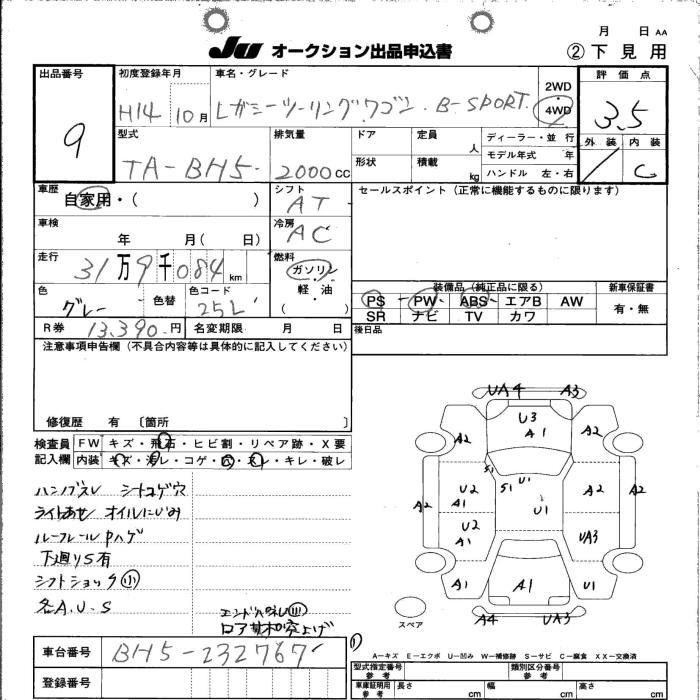 月 日 AA
JU オークション出品申込書 ②下見用
出品番号 初度登録年月 車名・グレード 2WD 4WD 評価点
9 H14 10月 レガシーツーリングワゴン. B-SPORT. 3.5
外装 内装
C
型式 排気量 ドア 定員 人 ディーラー・並行
モデル年式 年
TA-BH5. 2000CC 形状 積載 kg ハンドル 左・右
車歴 自家用・( ) シフト AT セールスポイント(正常に機能するものに限ります)
車検 年 月( 日) 冷房 AC
走行 31万9千084km 燃料 ガソリン 軽・油 ( )
装備品(純正品に限る) 新車保証書
色 グレー 色替 色コード 25L
PS PW ABS エアB AW 有・無
SR ナビ TV カワ
R券 13.390円 名変期限 月 日 後日品
注意事項申告欄(不具合内容等は具体的に記入してください)
修復歴 有 〔箇所 〕
検査員 FW キズ・飛石・ヒビ割・リペア跡・X要
記入欄 内装 キズ・汚レ・コゲ・穴・スレ・キレ・破レ
ハンドルスレ シートコゲ穴
ライトあせ オイルにじみ
ルーフレールPハゲ
下廻りS有
シフトショック小
各A.U.S
UA4 A3
U3
A1
A2 A2
S1
S1 U1
A2 U2 A1 U1 A2 A2
U2 A1 UA3
A1 A1 U1
スペア A4 UA3
車台番号 BH5-232767
登録番号
A-キズ E-エクボ U-凹み W-補修跡 S-サビ C-腐食 XX-交換済
型式指定番号 参考 類別区分番号 参考
車庫証明用 参考 長さ cm 幅 cm 高さ cm